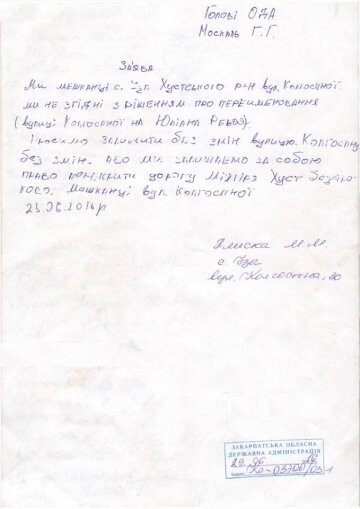 Голові ОДА
Москаль Г.Г.
Заява
Ми мешканці с. Іза Хустського р-н вул. Колгоспної.
ми не згідні з рішенням про переименовання
(вулиці Колгоспної на Юліпа Ревая).
і просимо залишити без змін вулицю. Колгоспну
без змін. або ми залишаємо за собою
право перекрити дорогу Міжгіря Хуст
Мошканці вул. Колгоспної
23.06.2016р
М.М.
с. Іза
вул. Колгоспна, 20
ЗАКАРПАТСЬКА ОБЛАСНА
ДЕРЖАВНА АДМІНІСТРАЦІЯ